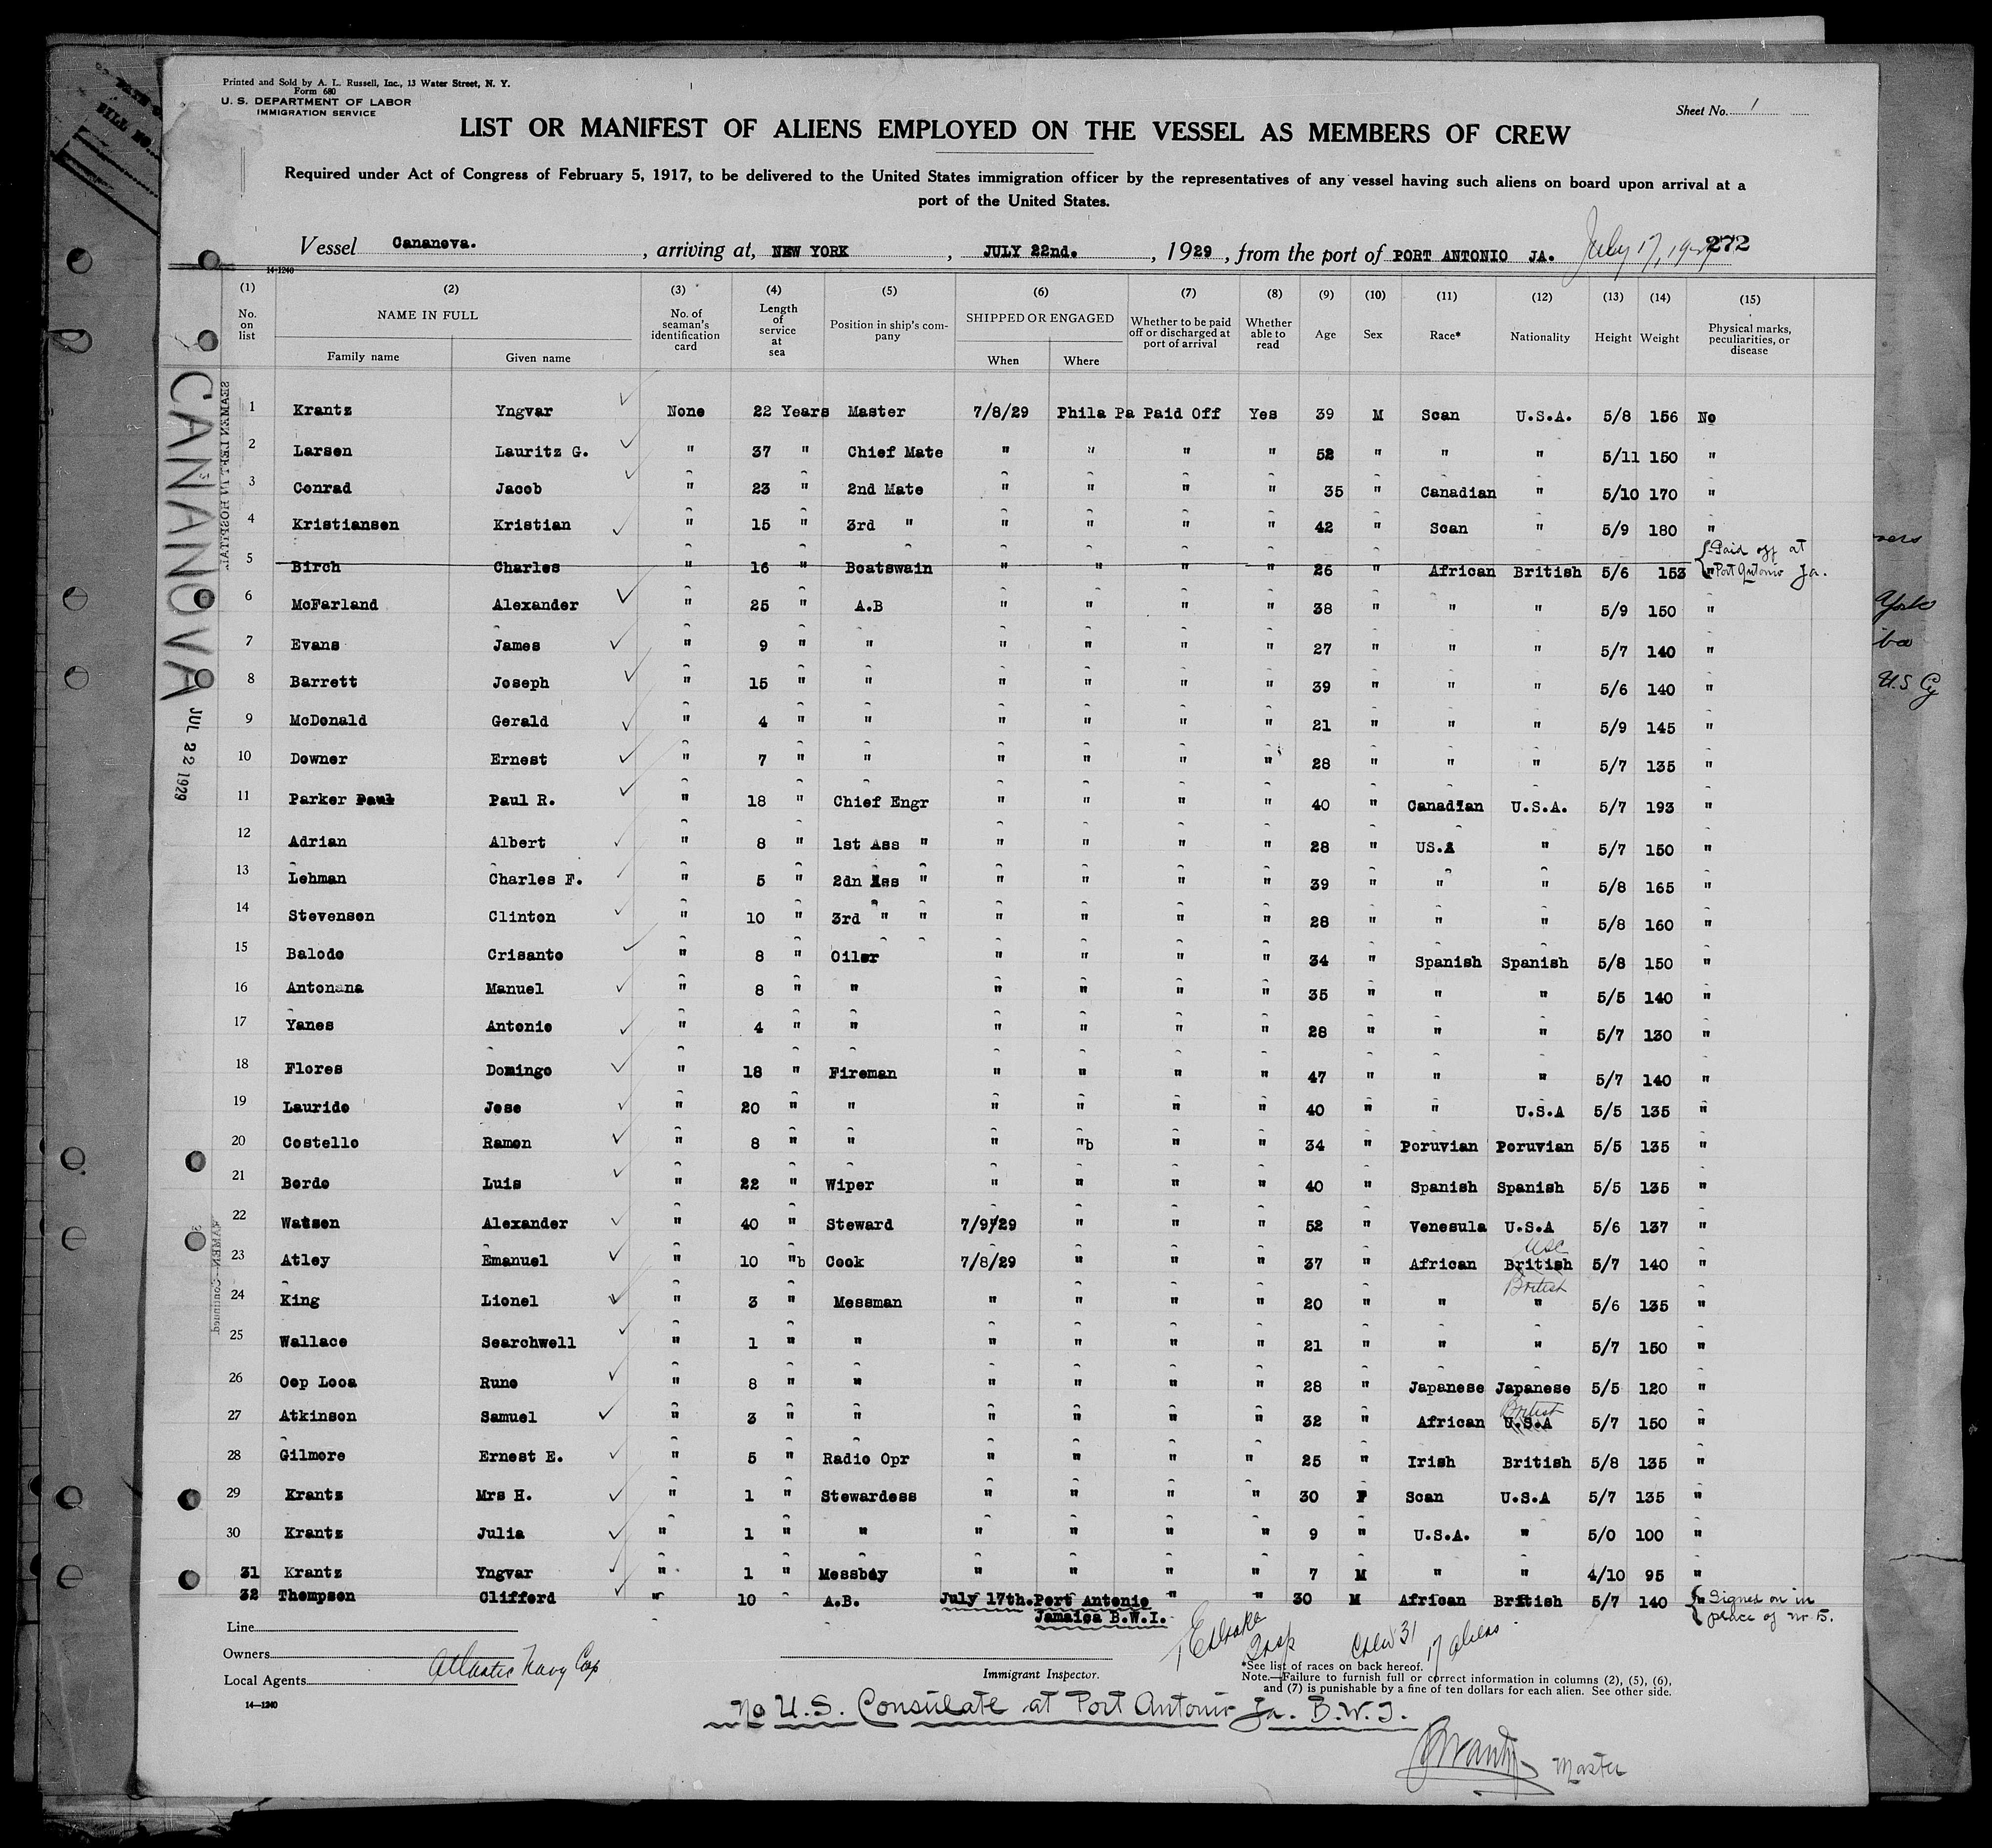 Printed and Sold by A. L. Russell, Inc., 13 Water Street, N. Y.
Form 680
U. S. DEPARTMENT OF LABOR
IMMIGRATION SERVICE
Sheet No. 1
LIST OR MANIFEST OF ALIENS EMPLOYED ON THE VESSEL AS MEMBERS OF CREW
Required under Act of Congress of February 5, 1917, to be delivered to the United States immigration officer by the representatives of any vessel having such aliens on board upon arrival at a
port of the United States.
Vessel Cananova. , arriving at, NEW YORK , JULY 22nd. , 1929 , from the port of PORT ANTONIO JA. July 17, 1929 272
14-1240
(1) (2) (3) (4) (5) (6) (7) (8) (9) (10) (11) (12) (13) (14) (15)
No. on list NAME IN FULL Family name Given name No. of seaman's identification card Length of service at sea Position in ship's company SHIPPED OR ENGAGED When Where Whether to be paid off or discharged at port of arrival Whether able to read Age Sex Race* Nationality Height Weight Physical marks, peculiarities, or disease
1 Krantz Yngvar None 22 Years Master 7/8/29 Phila Pa Paid Off Yes 39 M Scan U.S.A. 5/8 156 No
2 Larsen Lauritz G. " 37 " Chief Mate " " " " 52 " " " 5/11 150 "
3 Conrad Jacob " 23 " 2nd Mate " " " " 35 " Canadian " 5/10 170 "
4 Kristiansen Kristian " 15 " 3rd " " " " " 42 " Scan " 5/9 180 "
5 Birch Charles " 16 " Boatswain " " " " 26 " African British 5/6 153 " Paid off at Port Antonio Ja.
6 McFarland Alexander " 25 " A.B " " " " 38 " " " 5/9 150 "
7 Evans James " 9 " " " " " " 27 " " " 5/7 140 "
8 Barrett Joseph " 15 " " " " " " 39 " " " 5/6 140 "
9 McDonald Gerald " 4 " " " " " " 21 " " " 5/9 145 "
10 Downer Ernest " 7 " " " " " " 28 " " " 5/7 135 "
11 Parker Paul Paul R. " 18 " Chief Engr " " " " 40 " Canadian U.S.A. 5/7 193 "
12 Adrian Albert " 8 " 1st Ass " " " " " 28 " US.A " 5/7 150 "
13 Lehman Charles F. " 5 " 2dn Ass " " " " " 39 " " " 5/8 165 "
14 Stevenson Clinton " 10 " 3rd " " " " " " 28 " " " 5/8 160 "
15 Balodo Crisanto " 8 " Oiler " " " " 34 " Spanish Spanish 5/8 150 "
16 Antonana Manuel " 8 " " " " " " 35 " " " 5/5 140 "
17 Yanes Antonio " 4 " " " " " " 28 " " " 5/7 130 "
18 Flores Domingo " 18 " Fireman " " " " 47 " " " 5/7 140 "
19 Laurido Jose " 20 " " " " " " 40 " " U.S.A 5/5 135 "
20 Costello Ramon " 8 " " " "b " " 34 " Peruvian Peruvian 5/5 135 "
21 Borde Luis " 22 " Wiper " " " " 40 " Spanish Spanish 5/5 135 "
22 Watson Alexander " 40 " Steward 7/9/29 " " " 52 " Venesula U.S.A 5/6 137 "
23 Atley Emanuel " 10 "b Cook 7/8/29 " " " 37 " African British USC 5/7 140 "
24 King Lionel " 3 " Messman " " " " 20 " " " British 5/6 135 "
25 Wallace Searchwell " 1 " " " " " " 21 " " " 5/7 150 "
26 Oep Looa Rune " 8 " " " " " " 28 " Japanese Japanese 5/5 120 "
27 Atkinson Samuel " 3 " " " " " " 32 " African U.S.A British 5/7 150 "
28 Gilmore Ernest E. " 5 " Radio Opr " " " " 25 " Irish British 5/8 135 "
29 Krantz Mrs H. " 1 " Stewardess " " " " 30 F Scan U.S.A 5/7 135 "
30 Krantz Julia " 1 " " " " " " 9 " U.S.A. " 5/0 100 "
31 Krantz Yngvar " 1 " Messboy " " " " 7 M " " 4/10 95 "
32 Thompson Clifford " 10 A.B. July 17th. Port Antonio Jamaica B.W.I. " " 30 M African British 5/7 140 " Signed on in place of No 5.
Line
Owners
Local Agents Atlantic Navy Corp
Immigrant Inspector.
Insp Crew 31 17 aliens
*See list of races on back hereof.
Note.—Failure to furnish full or correct information in columns (2), (5), (6),
and (7) is punishable by a fine of ten dollars for each alien. See other side.
14—1240
No U.S. Consulate at Port Antonio Ja. B.W.I.
Krantz Master
CANANOVA
JUL 22 1929
SEAMEN LEFT IN HOSPITAL
BILL NO.
York
ba
U.S Cy